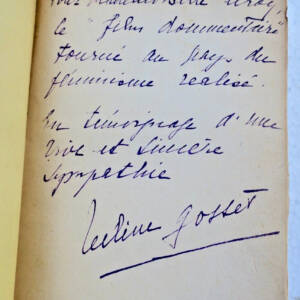 Pour Mademoiselle
le "film documentaire"
tourné au pays du
féminisme réalisé.
En témoignage d'une
vive et sincère
sympathie
Gosset